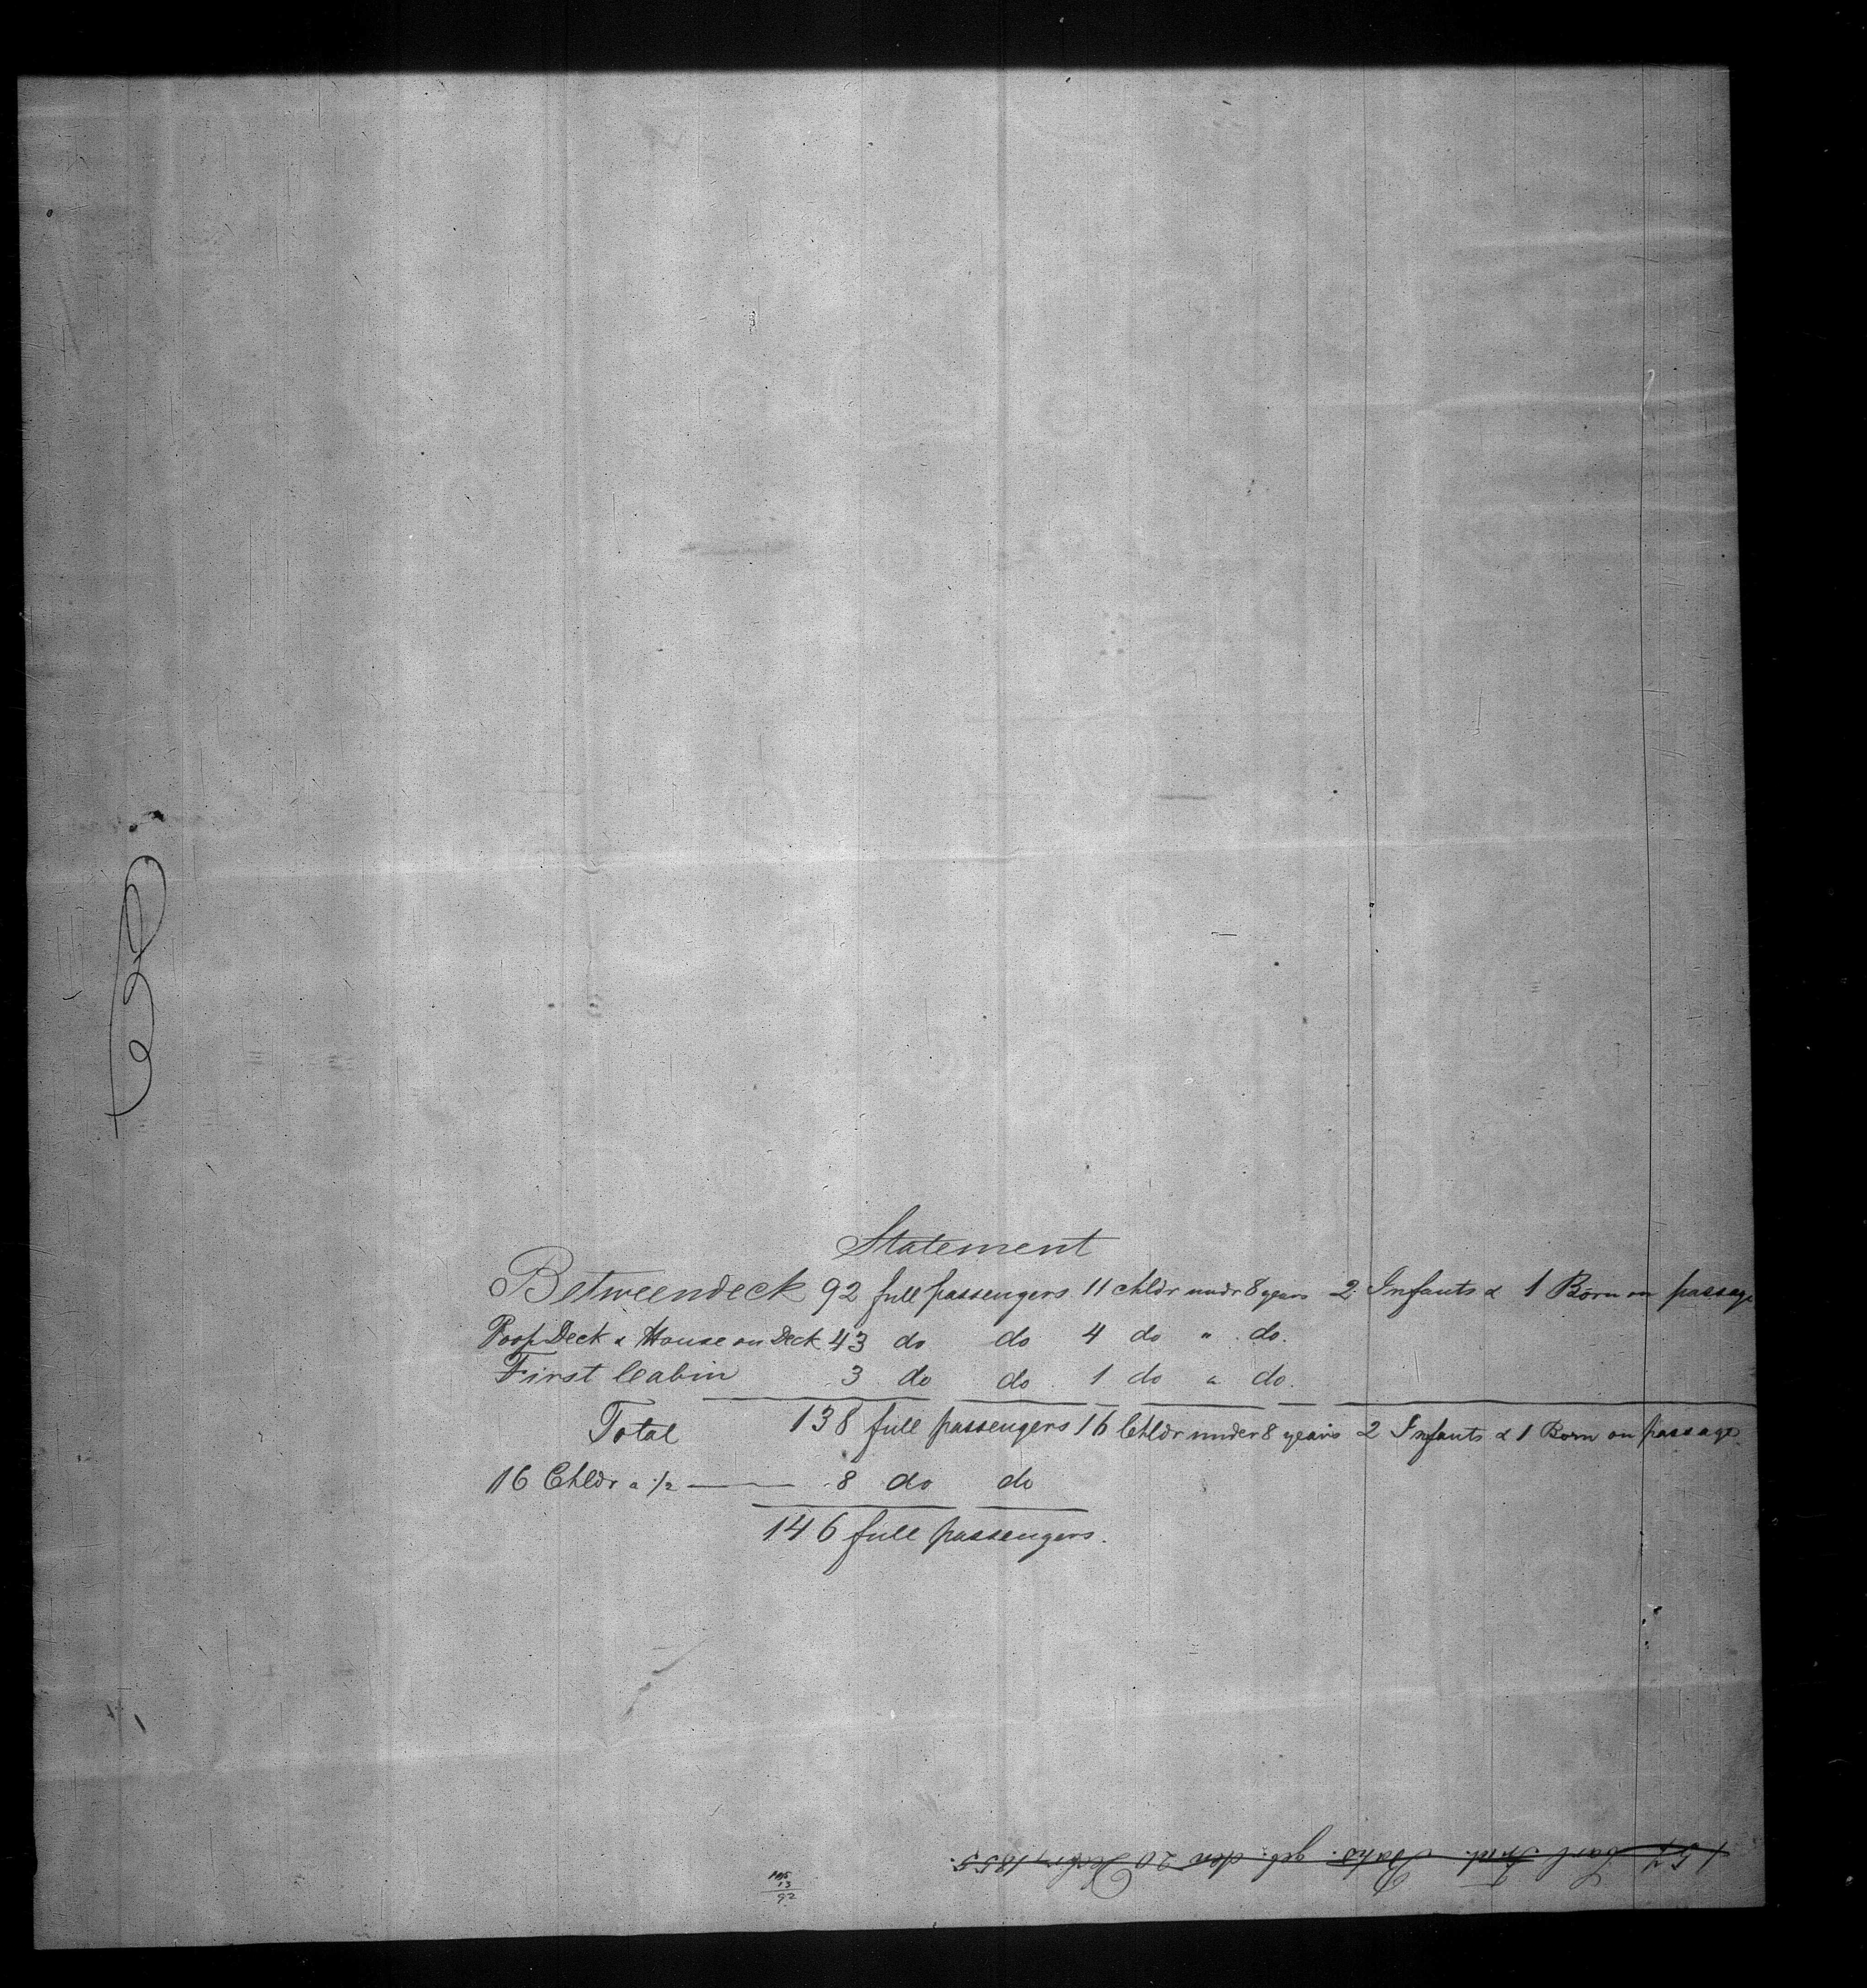 Statement
Betweendeck 92 full passengers 11 Chldr undr 8 years 2 Infants & 1 Born on passage
Poop Deck & House on Deck 43 do do 4 do " do.
First Cabin 3 do do 1 do " do.
Total 138 full passengers 16 Chldr under 8 years 2 Infants & 1 Born on passage
16 Chldr a 1/2 — 8 do do
146 full passengers.
157 Carl Frid. geb. den 20 1855.
13
92